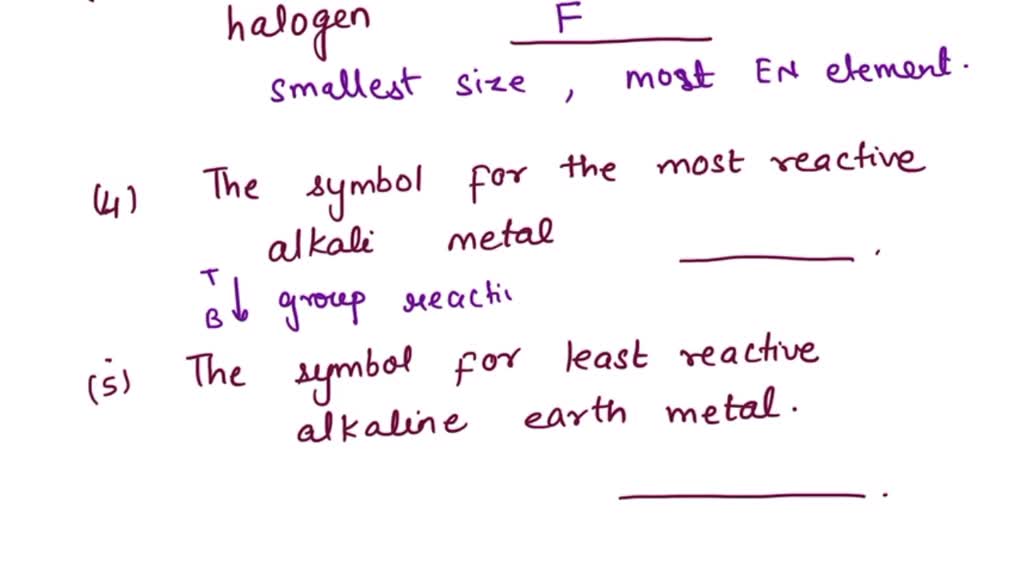 halogen F
smallest size , most EN element.
(4) The symbol for the most reactive
alkali metal .
T
B ↓ group reacti
(5) The symbol for least reactive
alkaline earth metal.
.